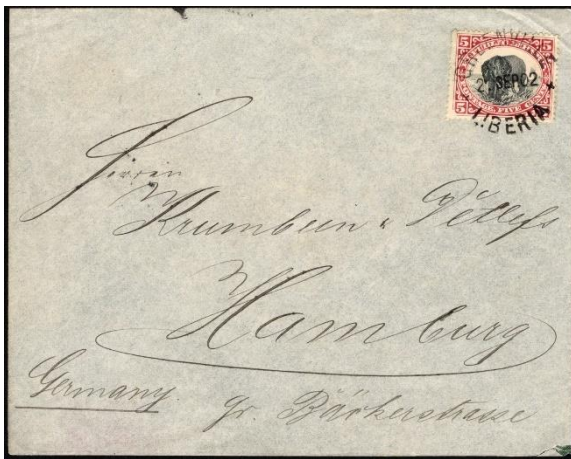 GREENVILLE
5 5
2. SEP 02
5 FIVE CENTS 5
LIBERIA
Herren
Krumbein & Detlefs
Hamburg
Germany. gr. Bäckerstrasse